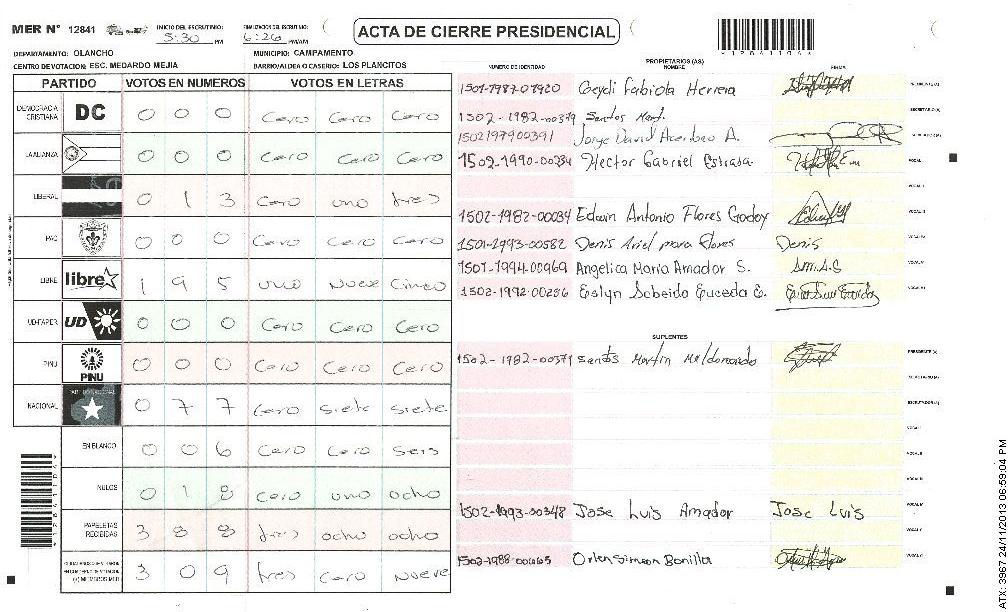 MER N° 12841 INICIO DEL ESCRUTINIO: 5:30 PM FINALIZACION DEL ESCRUTINIO: 6:26 PM/AM
ACTA DE CIERRE PRESIDENCIAL
DEPARTAMENTO: OLANCHO MUNICIPIO: CAMPAMENTO
CENTRO DE VOTACION: ESC. MEDARDO MEJIA BARRIO/ALDEA O CASERIO: LOS PLANCITOS
PARTIDO VOTOS EN NUMEROS VOTOS EN LETRAS
DEMOCRACIA CRISTIANA DC 0 0 0 Cero Cero Cero
LA ALIANZA 0 0 0 Cero Cero Cero
LIBERAL 0 1 3 Cero uno tres
PAC 0 0 0 Cero Cero Cero
LIBRE libre 1 9 5 uno Nueve Cinco
UD-FAPER UD 0 0 0 Cero Cero Cero
PINU PINU 0 0 0 Cero Cero Cero
NACIONAL 0 7 7 Cero siete siete
EN BLANCO 0 0 6 Cero Cero seis
NULOS 0 1 8 Cero uno ocho
PAPELETAS RECIBIDAS 3 8 8 tres ocho ocho
3 0 9 tres Cero Nueve
PROPIETARIOS (AS)
NUMERO DE IDENTIDAD NOMBRE FIRMA
1501-1987-01920 Geydi Fabiola Herrera PRESIDENTE (A)
1502-1982-00379 Santos Mart. SECRETARIO (A)
1502197900391 Jorge David A.
1502-1990-00234 Hector Gabriel Estrada
1502-1982-00034 Edwin Antonio Flores Godoy
1501-1993-00582 Denis Ariel mara Flores Denis
1501-1994-00969 Angelica Maria Amador S. Am.A.S
1502-1992-00286 Eslyn Sobeida Euceda E.
SUPLENTES
1502-1982-00379 Santos Martin Maldonado PRESIDENTE (A)
SECRETARIO (A)
ESCRUTADOR (A)
1502-1993-00348 Jose Luis Amador Jose Luis
1502-1988-00065 Orlen Simeon Bonilla
ATX: 3967 24/11/2013 06:59:04 PM